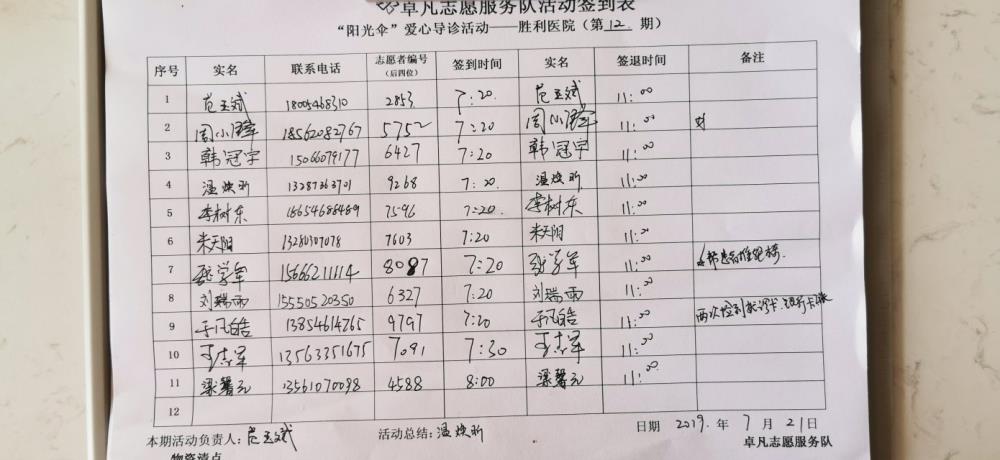 卓凡志愿服务队活动签到表
“阳光伞”爱心导诊活动——胜利医院（第12期）
序号 实名 联系电话 志愿者编号（后四位） 签到时间 实名 签退时间 备注
1 范玉斌 18005468310 2853 7:20 范玉斌 11:00
2 周小 18562082767 5752 7:20 周小 11:00
3 韩冠宇 15066079177 6427 7:20 韩冠宇 11:00
4 温焕昕 13287363701 9268 7:20 温焕昕 11:00
5 李树东 18654688489 7596 7:20 李树东 11:00
6 7603 7:20 11:00
7 张学军 15666211114 8087 7:20 张学军 11:00
8 刘瑞雨 15550520350 6327 7:20 刘瑞雨 11:00
9 于凡皓 13854614765 9797 7:20 于凡皓 11:00 两次
10 王志军 13563351675 7091 7:30 王志军 11:00
11 梁馨元 13561070098 4588 8:00 梁馨元 11:00
12
本期活动负责人：范玉斌 活动总结：温焕昕 日期 2019.年 7月 21日
物资清点 卓凡志愿服务队